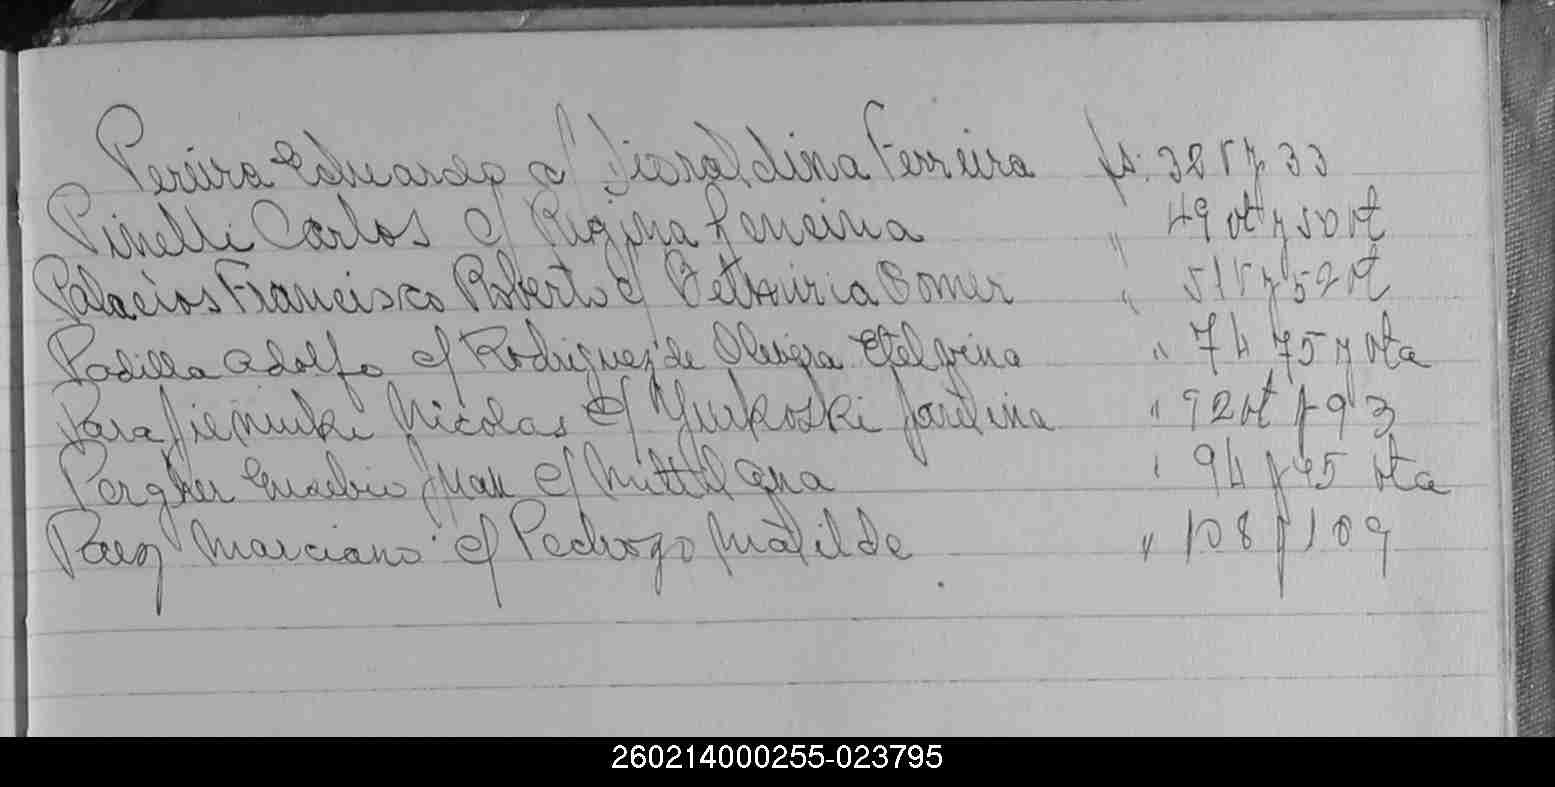 Pereira Eduardo c/ Geraldina Ferreira fs. 32 v y 33
Pinelli Carlos c/ Regina Ferreira " 49 vt y 50 vt
Palacios Francisco Roberto c/ Gomez " 51 v y 52 vt
Padilla Adolfo c/ Rodriguez de Olivera Etelvina " 74 75 y vta
Nicolas c/ Yurkoski Paulina " 92 vt y 93
Pergher Eusebio Juan c/ Mittel Ana " 94 y 95 vta
Paez Marciano c/ Pedrozo Matilde " 108 y 109
260214000255-023795